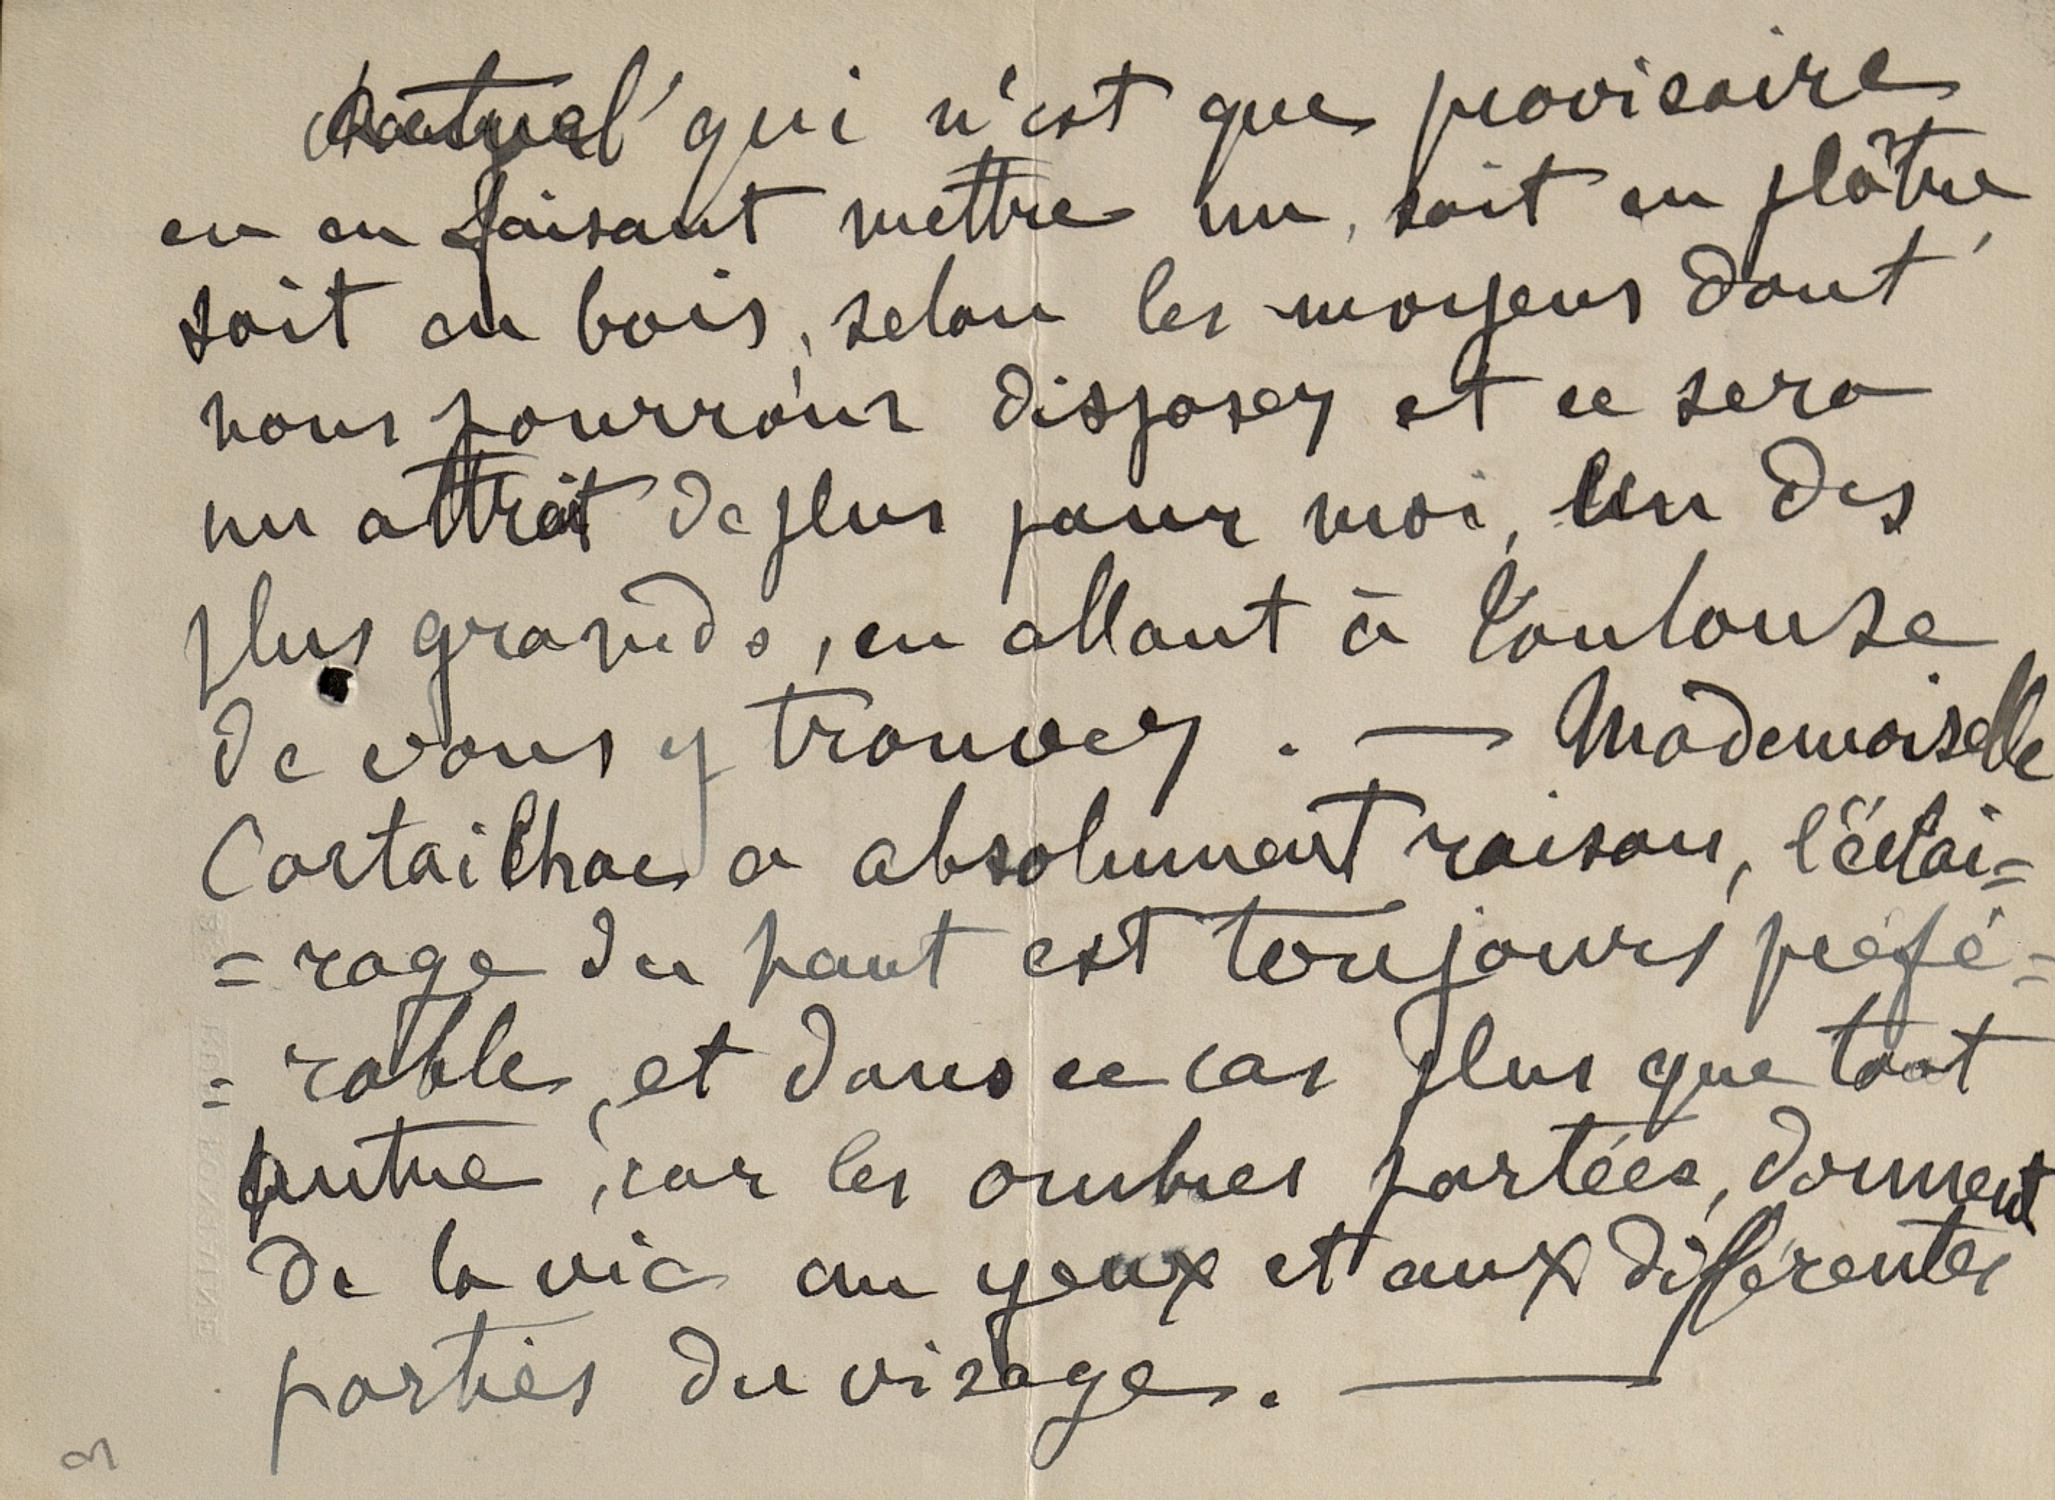 actuel qui n'est que provisoire
en en faisant mettre un, soit en plâtre,
soit en bois, selon les moyens dont
nous pourrons disposer et ce sera
un attrait de plus pour moi, un des
plus grands, en allant à Toulouse
de vous y trouver. — Mademoiselle
Cartailhac a absolument raison, l'éclai=
=rage du haut est toujours préfé=
=rable, et dans ce cas plus que tout
autre, car les ombres portées, donnent
de la vie au yeux et aux différentes
parties du visage. —